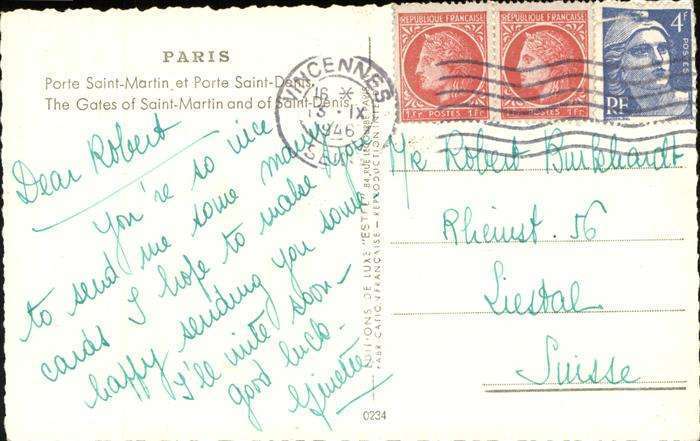 PARIS
Porte Saint-Martin et Porte Saint-Denis
The Gates of Saint-Martin and of Saint-Denis
Dear Robert
You're so nice
to send me some many
cards I hope to make you
happy sending you some
I'll write soon -
good luck -
Ginette
VINCENNES
16 *
5 · IX
1946
REPUBLIQUE FRANÇAISE
1Fr. POSTES 1Fr.
REPUBLIQUE FRANÇAISE
1Fr. POSTES 1Fr.
4F
POSTES
RF
Mr Robert Burkhardt
Rheinst. 56
Liestal
Suisse
DE LUXE "ESTEL"
FABRICATION FRANÇAISE - REPRODUCTION
0234